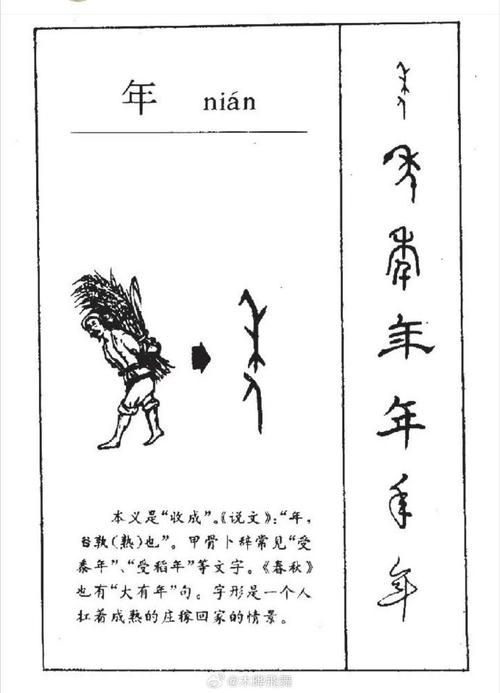 年 nián
本义是“收成”。《说文》:“年,
谷孰(熟)也”。甲骨卜辞常见“受
黍年”、“受稻年”等文字。《春秋》
也有“大有年”句。字形是一个人
扛着成熟的庄稼回家的情景。
年
年
年
年